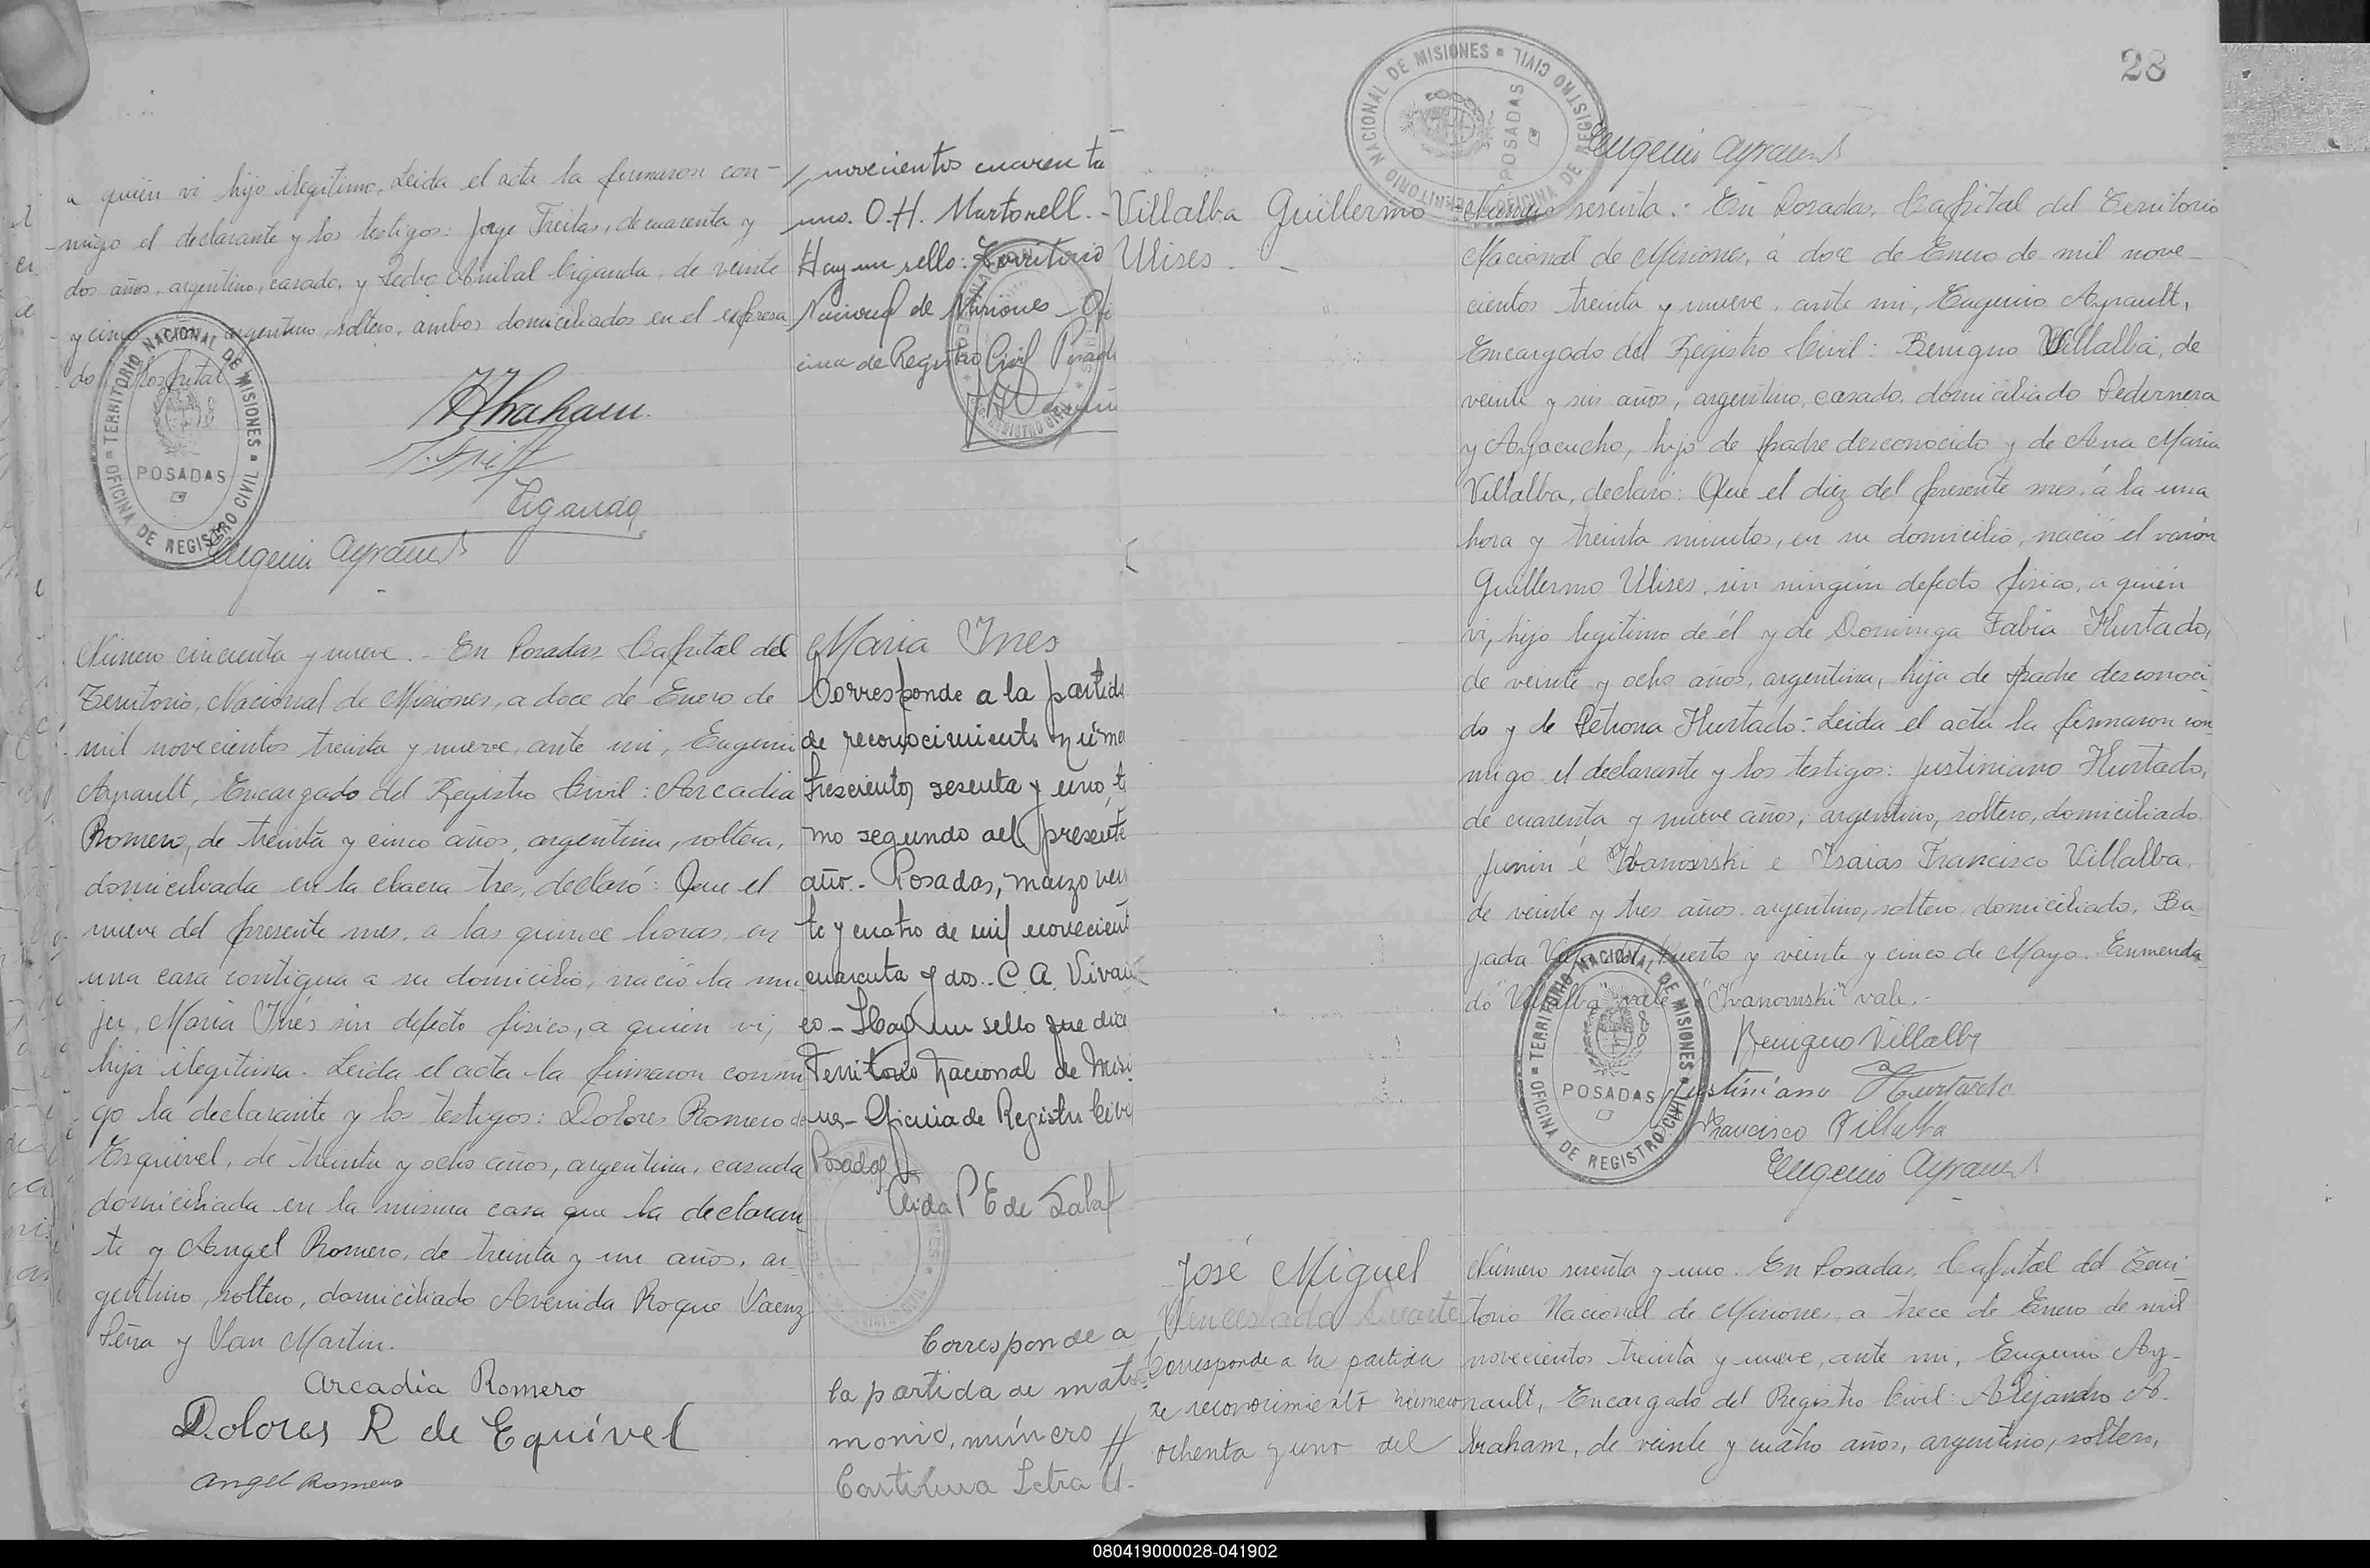 a quién vi hijo ilegitimo. Leida el acta la firmaron con-
migo el declarante y los testigos: Jorge Freitas, de cuarenta y
dos años, argentino, casado, y Pedro Anibal Giganda, de veinte
y cinco argentino, soltero, ambos domiciliados en el expresa
do Hospital
TERRITORIO NACIONAL DE MISIONES
OFICINA DE REGISTRO CIVIL
POSADAS
AAbraham
Giganda
Eugenio Ayrault
Número cincuenta y nueve.- En Posadas Capital del
Territorio, Nacional de Misiones, a doce de Enero de
mil novecientos treinta y nueve, ante mi, Eugenio
Ayrault, Encargado del Registro Civil: Arcadia
Romero, de treinta y cinco años, argentina, soltera,
domiciliada en la chacra tres, declaró: Que el
nueve del presente mes, a las quince horas, en
una casa contigua a su domicilio, nació la mu
jer, Maria Inés sin defecto fisico, a quien vi,
hija ilegitima. Leida el acta la firmaron conmi
go la declarante y los testigos: Dolores Romero de
Esquivel, de treinta y ocho años, argentina, casada
domiciliada en la misma casa que la declaran
te y Angel Romero, de treinta y un años, ar-
gentino, soltero, domiciliado Avenida Roque Saenz
Peña y San Martin.
Arcadia Romero
Dolores R de Equivel
Angel Romero
novecientos cuarenta
uno. O.H. Martorell.-
Hay un sello: Territorio
Nacional de Misiones - Ofi
cina de Registro Civil Posad
Maria Ines
Corresponde a la partida
de reconocimiento núme
trescientos sesenta y uno, t
mo segundo del presente
año.- Posadas, marzo vein
te y cuatro de mil novecient
cuarenta y dos.- C. A. Vivan
co - Hay un sello que dice
Territorio Nacional de Misi
nes - Oficina de Registro Civi
Posadas
Aida P E de Labat
Corresponde a
la partida de matri
monio, número //
Continua Letra U.
28
TERRITORIO NACIONAL DE MISIONES
OFICINA DE REGISTRO CIVIL
POSADAS
Eugenio Ayrault
Villalba Guillermo
Ulises. -
Número sesenta.- En Posadas, Capital del Territorio
Nacional de Misiones, á doce de Enero de mil nove-
cientos treinta y nueve, ante mi, Eugenio Ayrault,
Encargado del Registro Civil: Benigno Villalba, de
veinte y seis años, argentino, casado, domiciliado Pedernera
y Ayacucho, hijo de padre desconocido y de Ana Maria
Villalba, declaró: Que el diez del presente mes, á la una
hora y treinta minutos, en su domicilio, nació el varón
Guillermo Ulises, sin ningún defecto fisico, a quién
vi, hijo legitimo de él y de Dominga Fabia Hurtado,
de veinte y ocho años, argentina, hija de padre desconoci-
do y de Petrona Hurtado.- Leida el acta la firmaron con
migo el declarante y los testigos: Justiniano Hurtado,
de cuarenta y nueve años, argentino, soltero, domiciliado
Junin é Ivanowski e Isaias Francisco Villalba,
de veinte y tres años, argentino, soltero, domiciliado, Ba-
jada Puerto y veinte y cinco de Mayo. Enmenda-
do "Villalba" vale "Ivanowski" vale.-
TERRITORIO NACIONAL DE MISIONES
OFICINA DE REGISTRO CIVIL
POSADAS
Benigno Villalba
Justiniano Hurtado
Francisco Villalba
Eugenio Ayrault
José Miguel
Wenceslada Duarte
Corresponde a la partida
de reconocimiento número
ochenta y uno del
Número sesenta y uno. En Posadas, Capital del Terri-
torio Nacional de Misiones, a trece de Enero de mil
novecientos treinta y nueve, ante mi, Eugenio Ay-
rault, Encargado del Registro Civil: Alejandro A.
braham, de veinte y cuatro años, argentino, soltero,
080419000028-041902